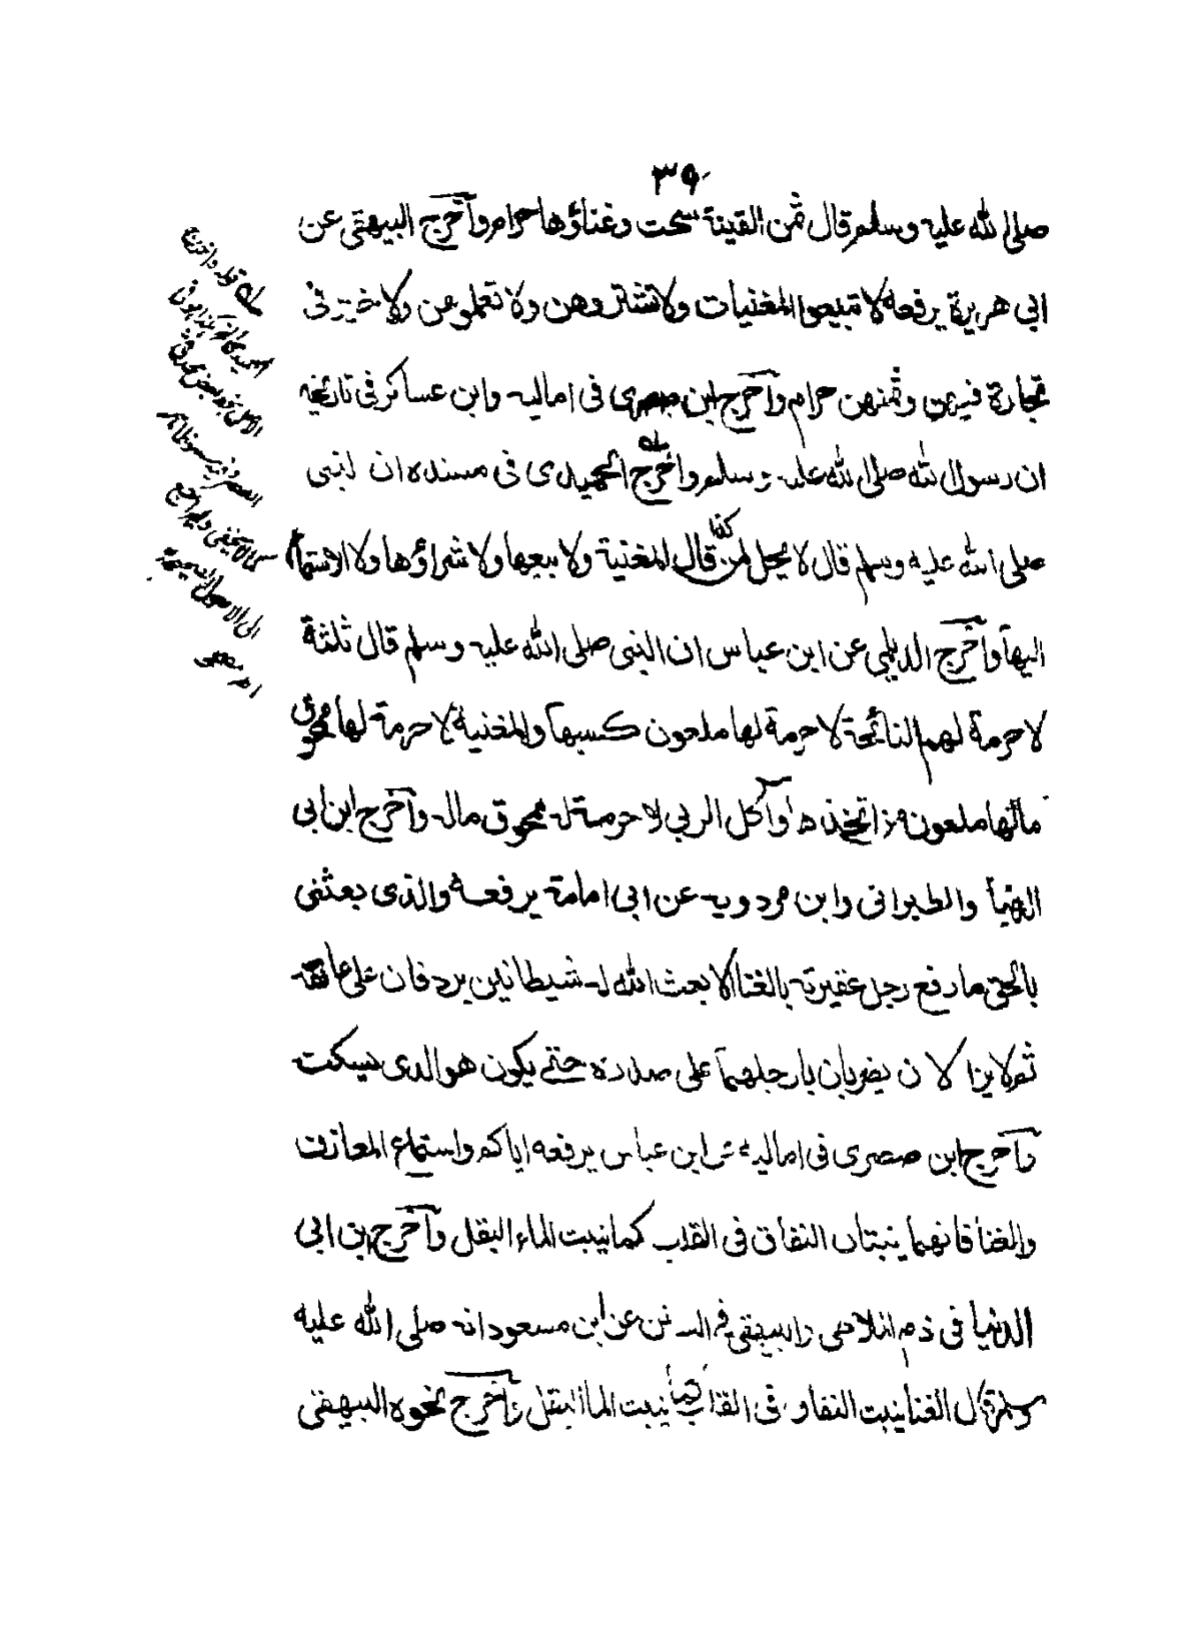 ٣٩
صلى الله عليه وسلم قال ثمن القينة سحت وغناؤها حرام وآخرج البيهقى عن
ابى هريرة يرفعه لا تبيعوا المغنيات ولا تشتروهن ولا تعلموهن ولا خير فى
تجارة فيهن وثمنهن حرام وآخرج ابن صصرى فى اماليه وابن عساكر فى تاريخه
ان رسول الله صلى الله عليه وسلم وآخرج الحميدى فى مسنده ان لنبى
صلى الله عليه وسلم قال لا يحل ثمن كذا قال المغنية ولا بيعها ولا شراؤها ولا الاستماع
اليها وآخرج الديلمى عن ابن عباس ان النبى صلى الله عليه وسلم قال ثلثة
لا حرمة لهم النائحة لا حرمة لها ملعون كسبها والمغنية لا حرمة لها ممحوق
مالها ملعون من اتخذها وآكل الربى لا حرمة له ممحوق ماله وآخرج ابن ابى
الدنيا والطبرانى وابن مردويه عن ابى امامة يرفعه والذى بعثنى
بالحق ما رفع رجل عقيرته بالغنا الا بعث الله له شيطانين يردفان على عاتقه
ثم لا يزالان يضربان بارجلهما على صدره حتى يكون هو الذى يسكت
وآخرج ابن صصرى فى اماليه عن ابن عباس يرفعه اياكم واستماع المعازف
والغنا فانهما ينبتان النفاق فى القلب كما ينبت الماء البقل وآخرج ابن ابى
الدنيا فى ذم الملاهى والبيهقى فى السنن عن ابن مسعود انه صلى الله عليه
وسلم قال الغنا ينبت النفاق فى القلب كما ينبت الماء البقل وآخرج نحوه البيهقى
له قوله واخرج